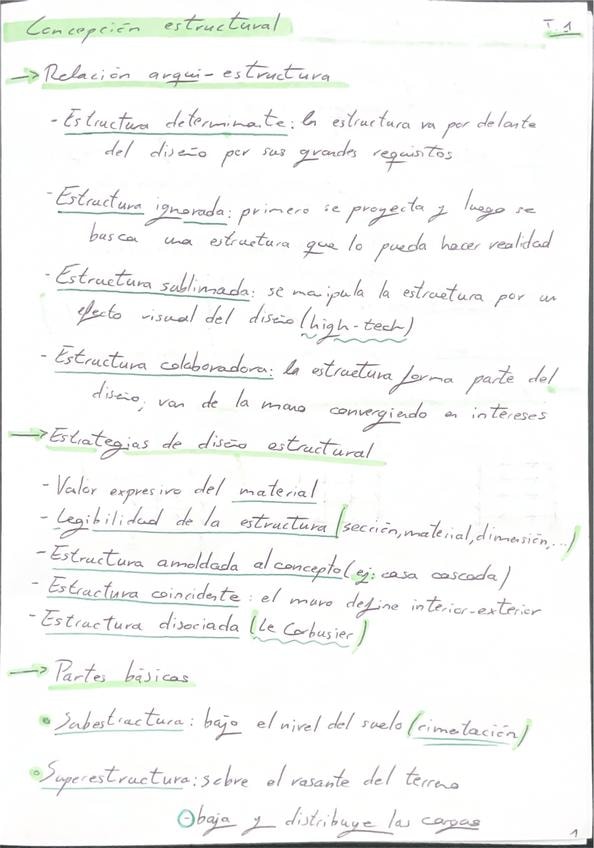 Concepción estructural T.1
→ Relación arqui-estructura
- Estructura determinante: la estructura va por delante
del diseño por sus grandes requisitos
- Estructura ignorada: primero se proyecta y luego se
busca una estructura que lo pueda hacer realidad
- Estructura sublimada: se manipula la estructura por un
efecto visual del diseño (high-tech)
- Estructura colaboradora: la estructura forma parte del
diseño; van de la mano convergiendo en intereses
→ Estrategias de diseño estructural
- Valor expresivo del material
- Legibilidad de la estructura (sección, material, dimensión,...)
- Estructura amoldada al concepto (ej: casa cascada)
- Estructura coincidente: el muro define interior-exterior
- Estructura disociada (Le Corbusier)
→ Partes básicas
• Subestructura: bajo el nivel del suelo (cimentación)
• Superestructura: sobre el rasante del terreno
- baja y distribuye las cargas
1